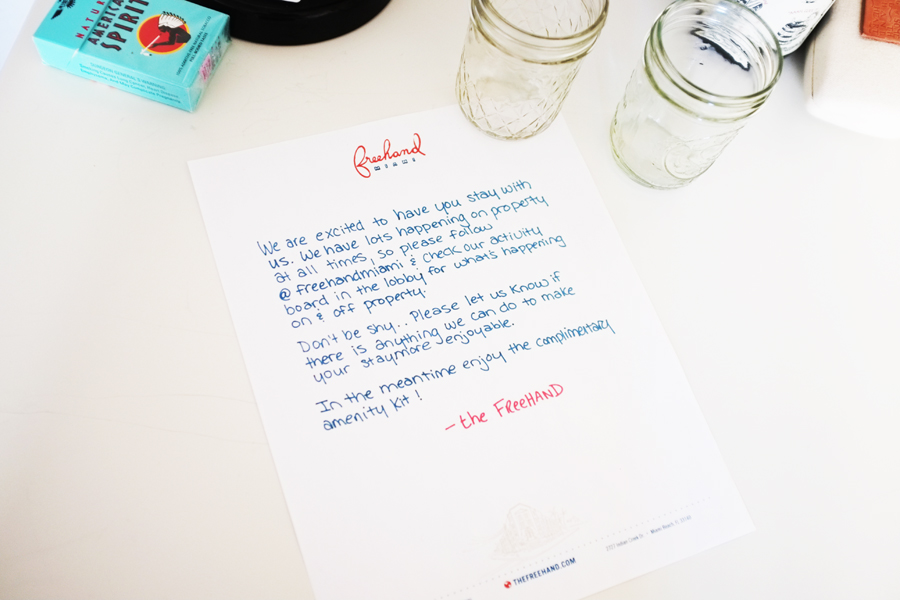 NATURAL
AMERICAN
SPIRIT
freehand
MIAMI
We are excited to have you stay with
us. We have lots happening on property
at all times, so please follow
@freehandmiami & check our activity
board in the lobby for what's happening
on & off property.
Don't be shy... Please let us know if
there is anything we can do to make
your stay more enjoyable.
In the meantime enjoy the complimentary
amenity kit!
- the FREEHAND
THEFREEHAND.COM
2727 Indian Creek Dr. • Miami Beach, FL 33140